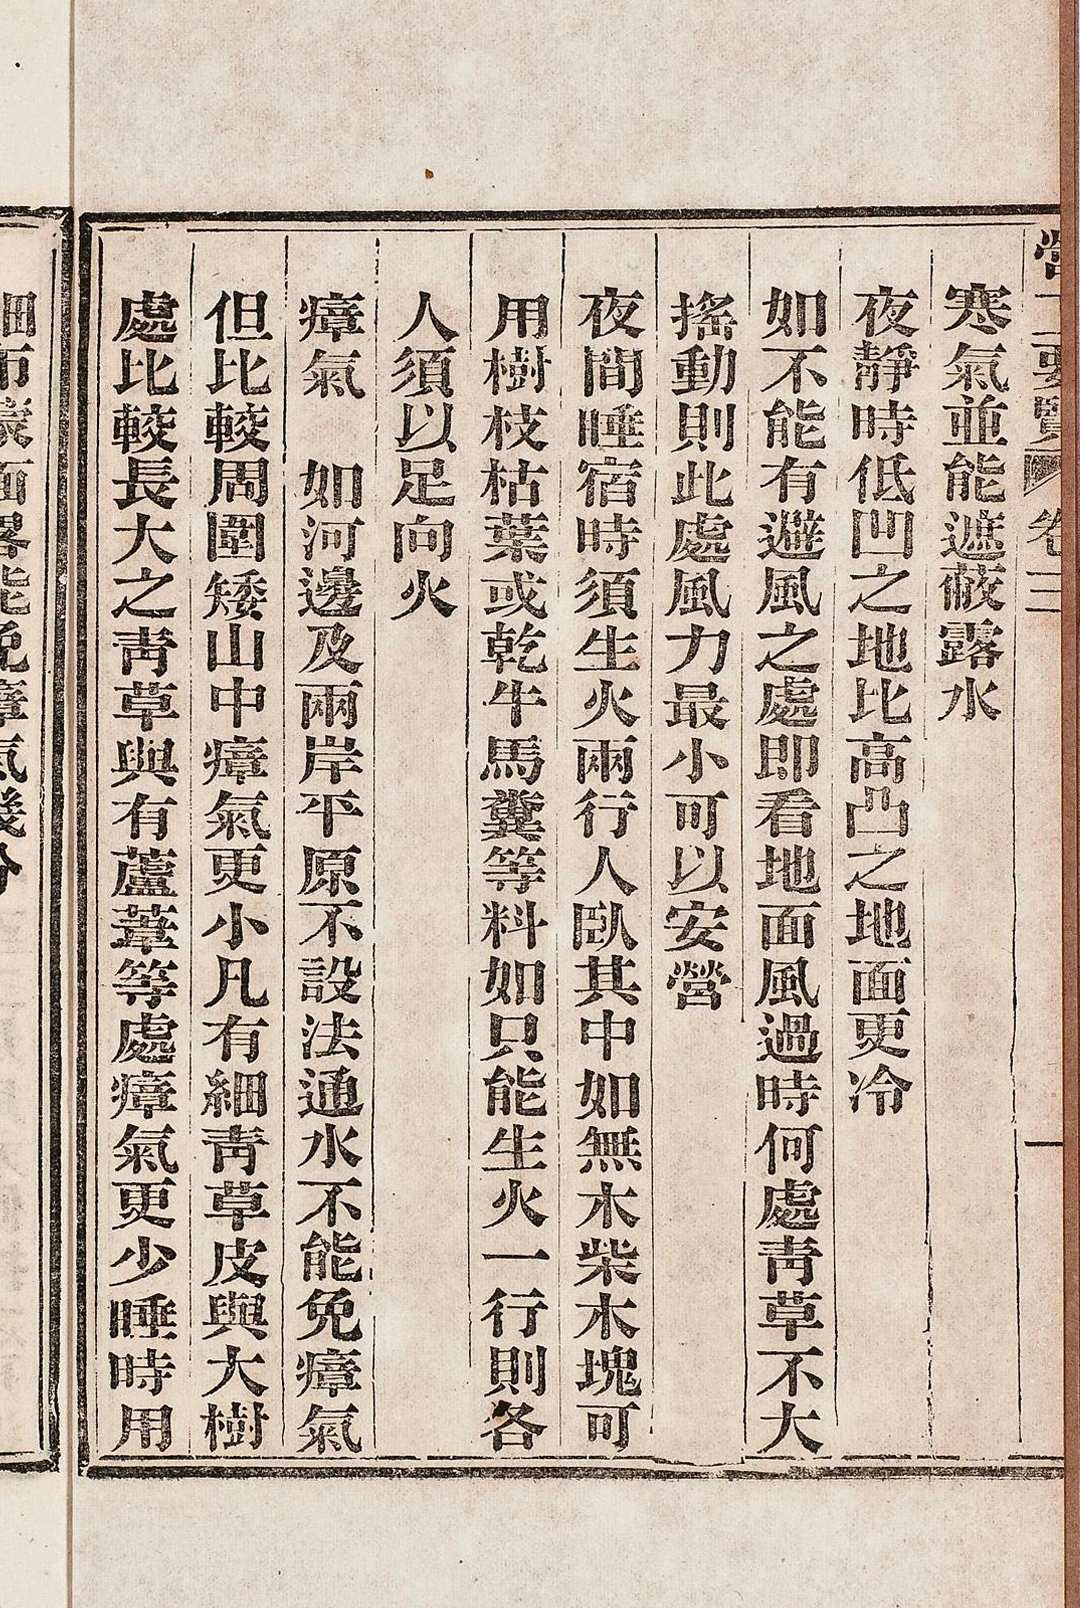 營工要覽 卷三
寒氣並能遮蔽露水
夜靜時低凹之地比高凸之地面更冷
如不能有避風之處即看地面風過時何處靑草不大
搖動則此處風力最小可以安營
夜間睡宿時須生火兩行人臥其中如無木柴木塊可
用樹枝枯葉或乾牛馬糞等料如只能生火一行則各
人須以足向火
瘴氣　如河邊及兩岸平原不設法通水不能免瘴氣
但比較周圍矮山中瘴氣更小凡有細靑草皮與大樹
處比較長大之靑草與有蘆葦等處瘴氣更少睡時用
細布蒙面畧能免瘴氣幾分